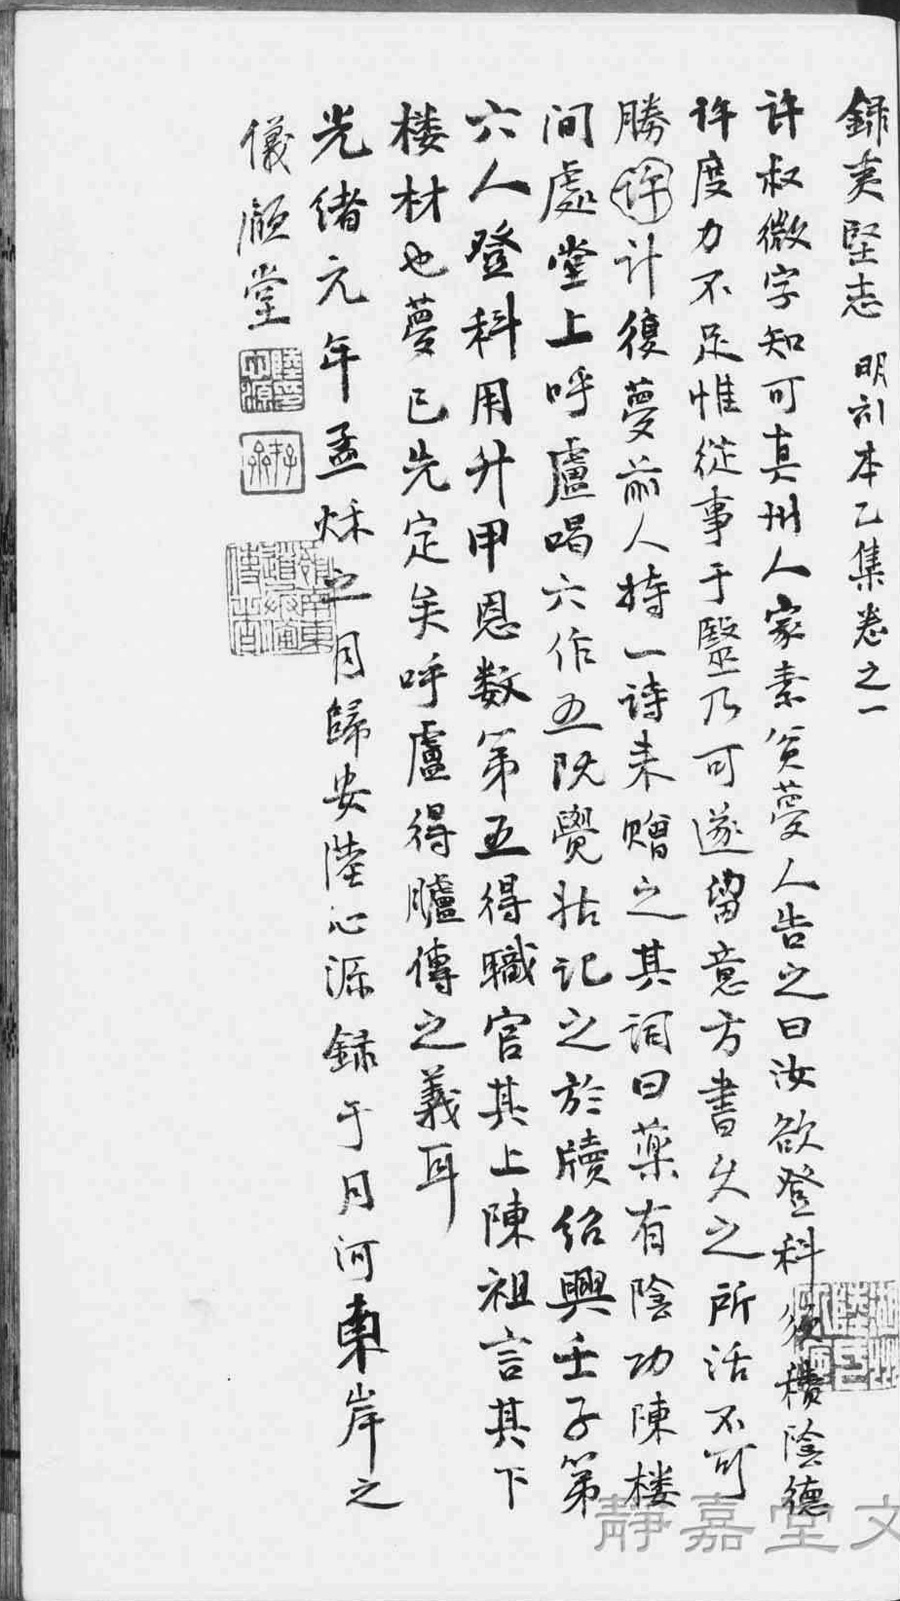 錄夷堅志 明刻本乙集卷之一
許叔微字知可真州人家素貧夢人告之曰汝欲登科須積陰德
許度力不足惟從事于醫乃可遂留意方書久之所活不可
勝許計復夢前人持一詩來贈之其詞曰藥有陰功陳樓
間處堂上呼盧喝六作五既覺姑記之於牘紹興壬子第
六人登科用升甲恩数第五得職官其上陳祖言其下
楼材也夢已先定矣呼盧得臚傳之義耳
光緒元年孟秌之月歸安陸心源錄于月河東岸之
儀顧堂
靜嘉堂文